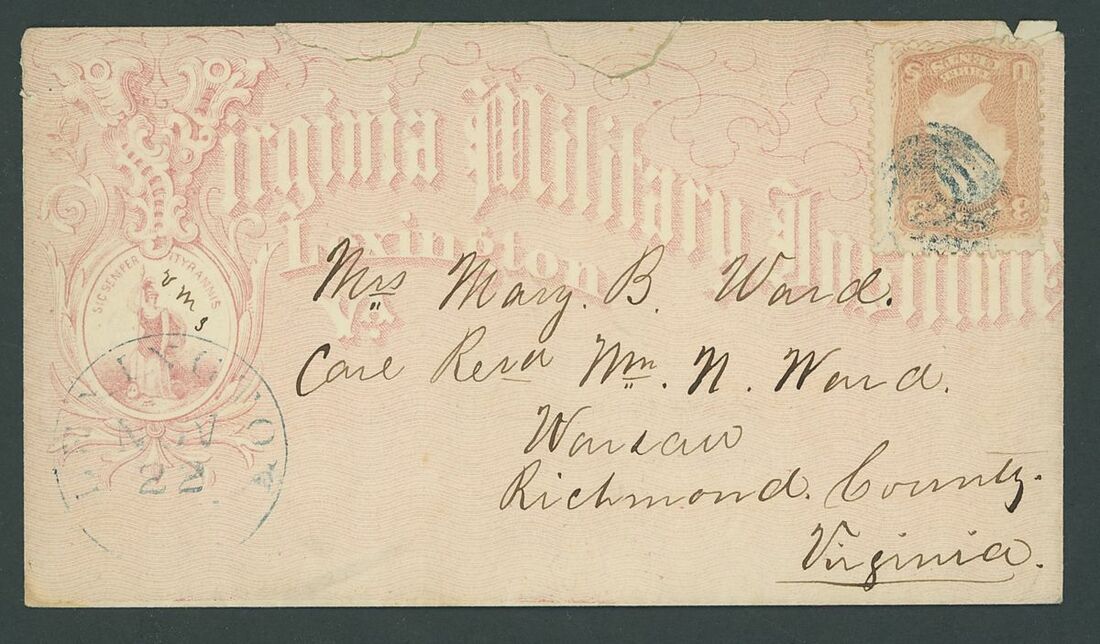 Virginia Military Institute
Lexington
Va.
SIC SEMPER TYRANNIS
vms
Mrs Mary. B. Ward.
Care Revd Wm. N. Ward.
Warsaw
Richmond. County.
Virginia.
LEXINGTON
22
U S
3 3